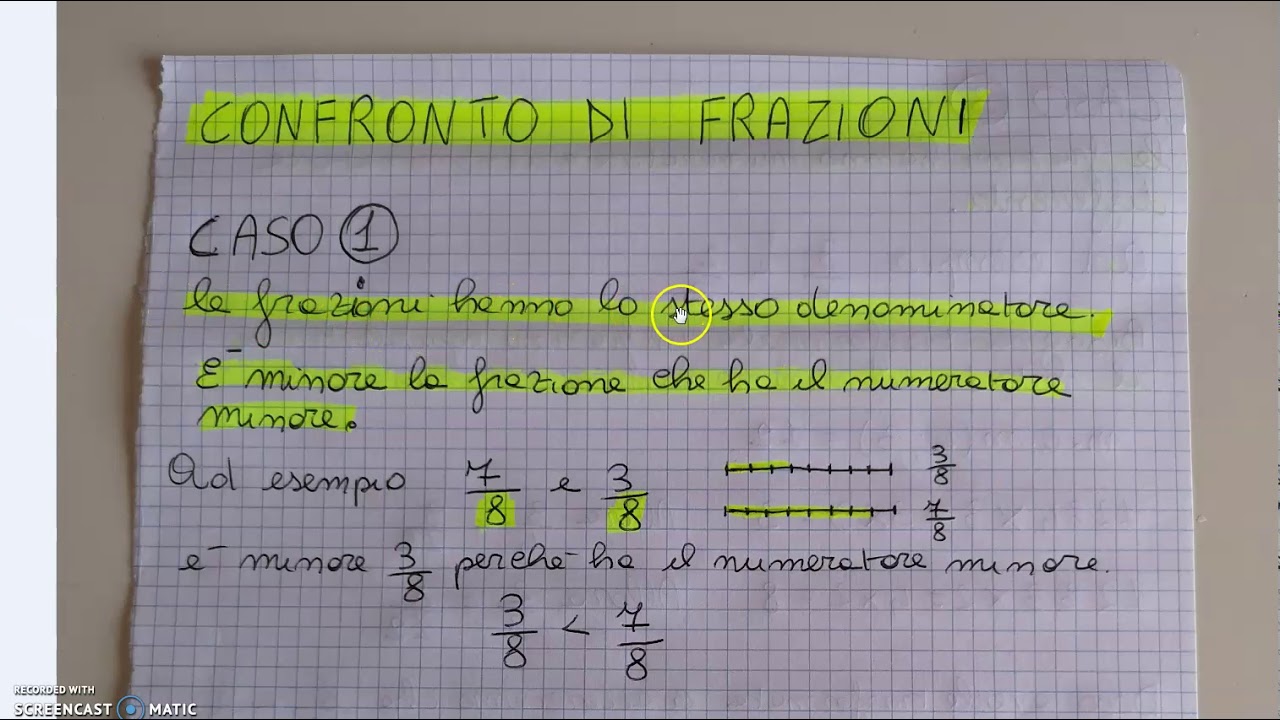 CONFRONTO DI FRAZIONI
CASO 1
le frazioni hanno lo stesso denominatore.
E' minore la frazione che ha il numeratore
minore.
Ad esempio 7/8 e 3/8
3/8
7/8
e' minore 3/8 perché ha il numeratore minore.
3/8 < 7/8
RECORDED WITH
SCREENCAST MATIC